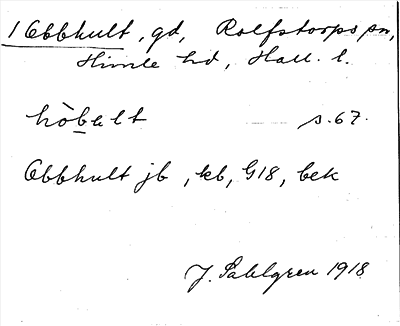 1 Obbhult, gd, Rolfstorps sn,
Himle hd, Hall. l.
hòbelt s. 67.
Obbhult jb, kb, G18, bek
J. Sahlgren 1918